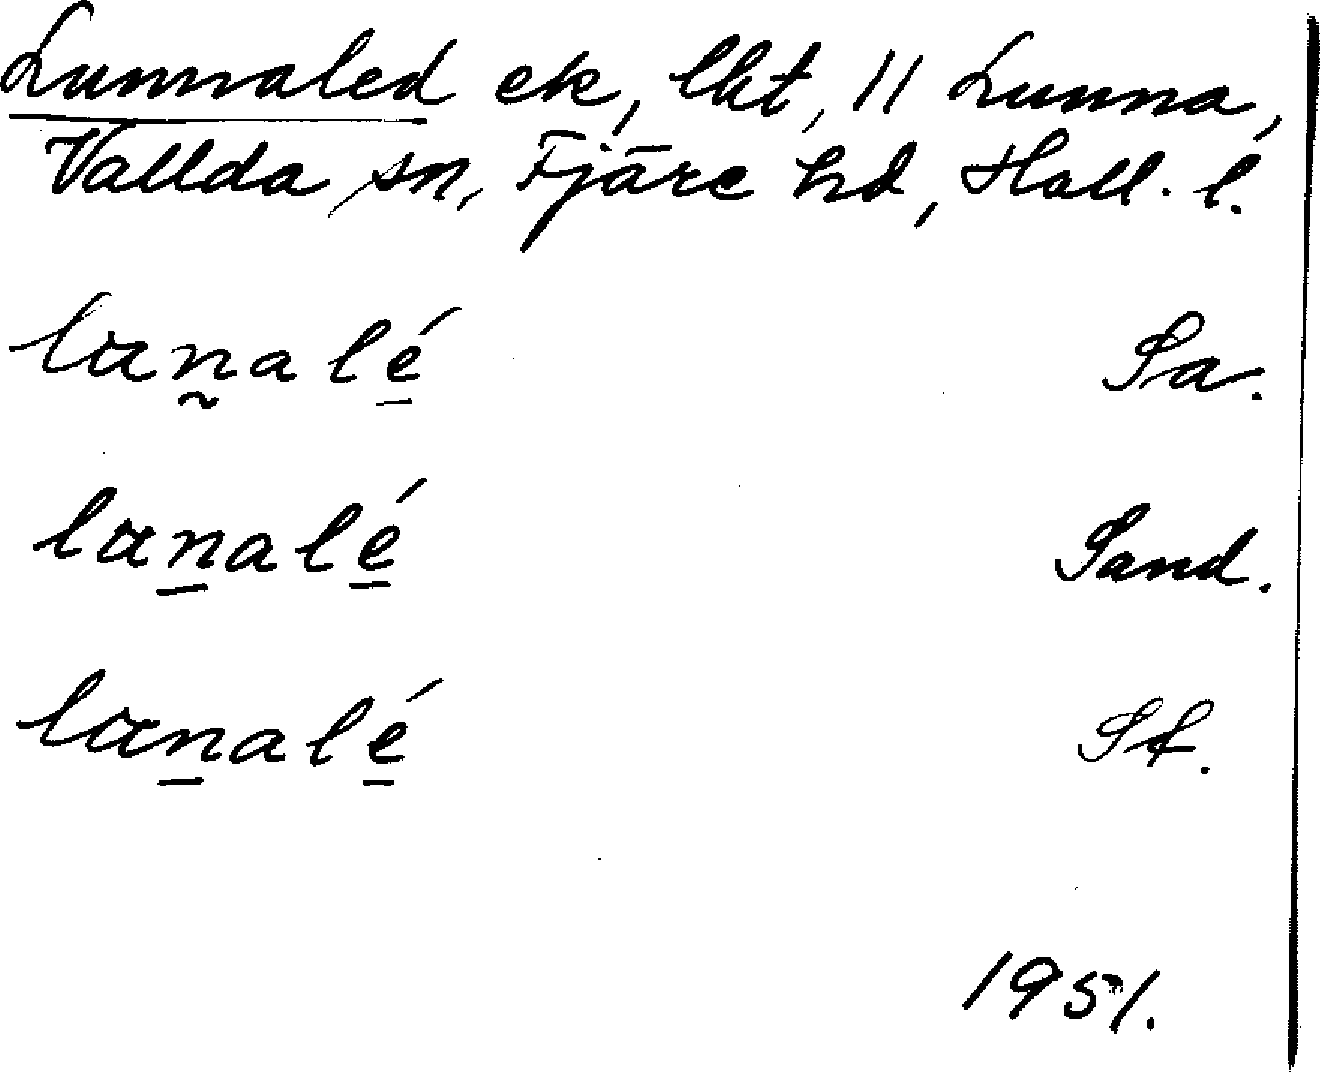 Lunnaled ek, lht, 11 Lunna,
Vallda sn, Fjäre hd, Hall. l.
lanalé Sa.
lanalé Sand.
lanalé St.
1951.